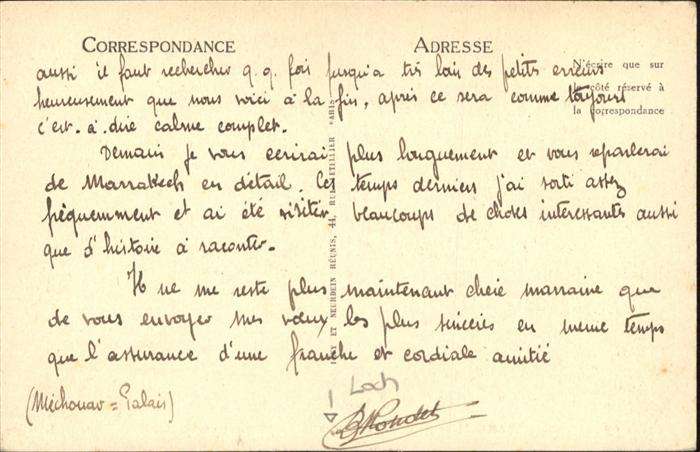 CORRESPONDANCE
ADRESSE
N'écrire que sur
côté réservé à
la correspondance
aussi il faut rechercher q.q. fois jusqu'a très loin des petits erreurs
heureusement que nous voici à la fin, après ce sera comme toujours
c'est-à-dire calme complet.
Demain je vous ecrirai plus longuement et vous reparlerai
de Marrakech en détail. Ces temps derniers j'ai sorti assez
fréquemment et ai été visiter beaucoups de choses interessantes aussi
que d'histoire à raconter.
Il ne me reste plus maintenant chère marraine que
de vous envoyer mes vœux les plus sincères en meme temps
que l'assurance d'une franche et cordiale amitié
(Méchouar = Palais)
LÉVY ET NEURDEIN RÉUNIS, 44, RUE LETELLIER PARIS